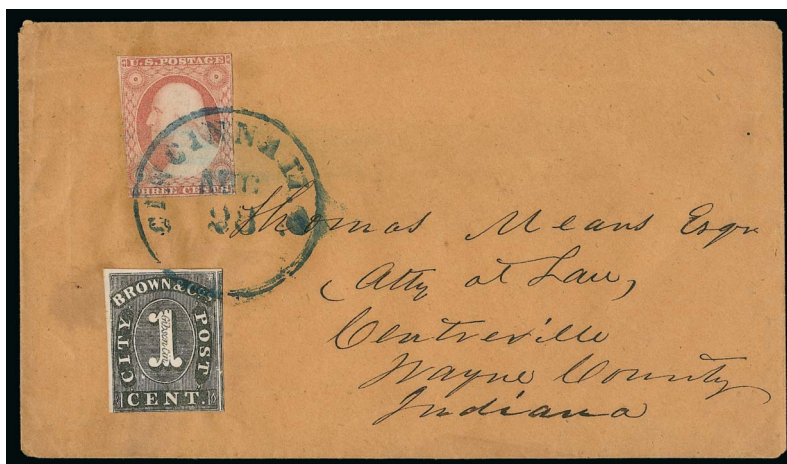 U.S. POSTAGE
THREE CENTS
CINCINNATI O
28
BROWN & Co's
CITY POST
1
CENT.
Thomas Means Esqr
Atty at Law,
Centreville
Wayne County
Indiana